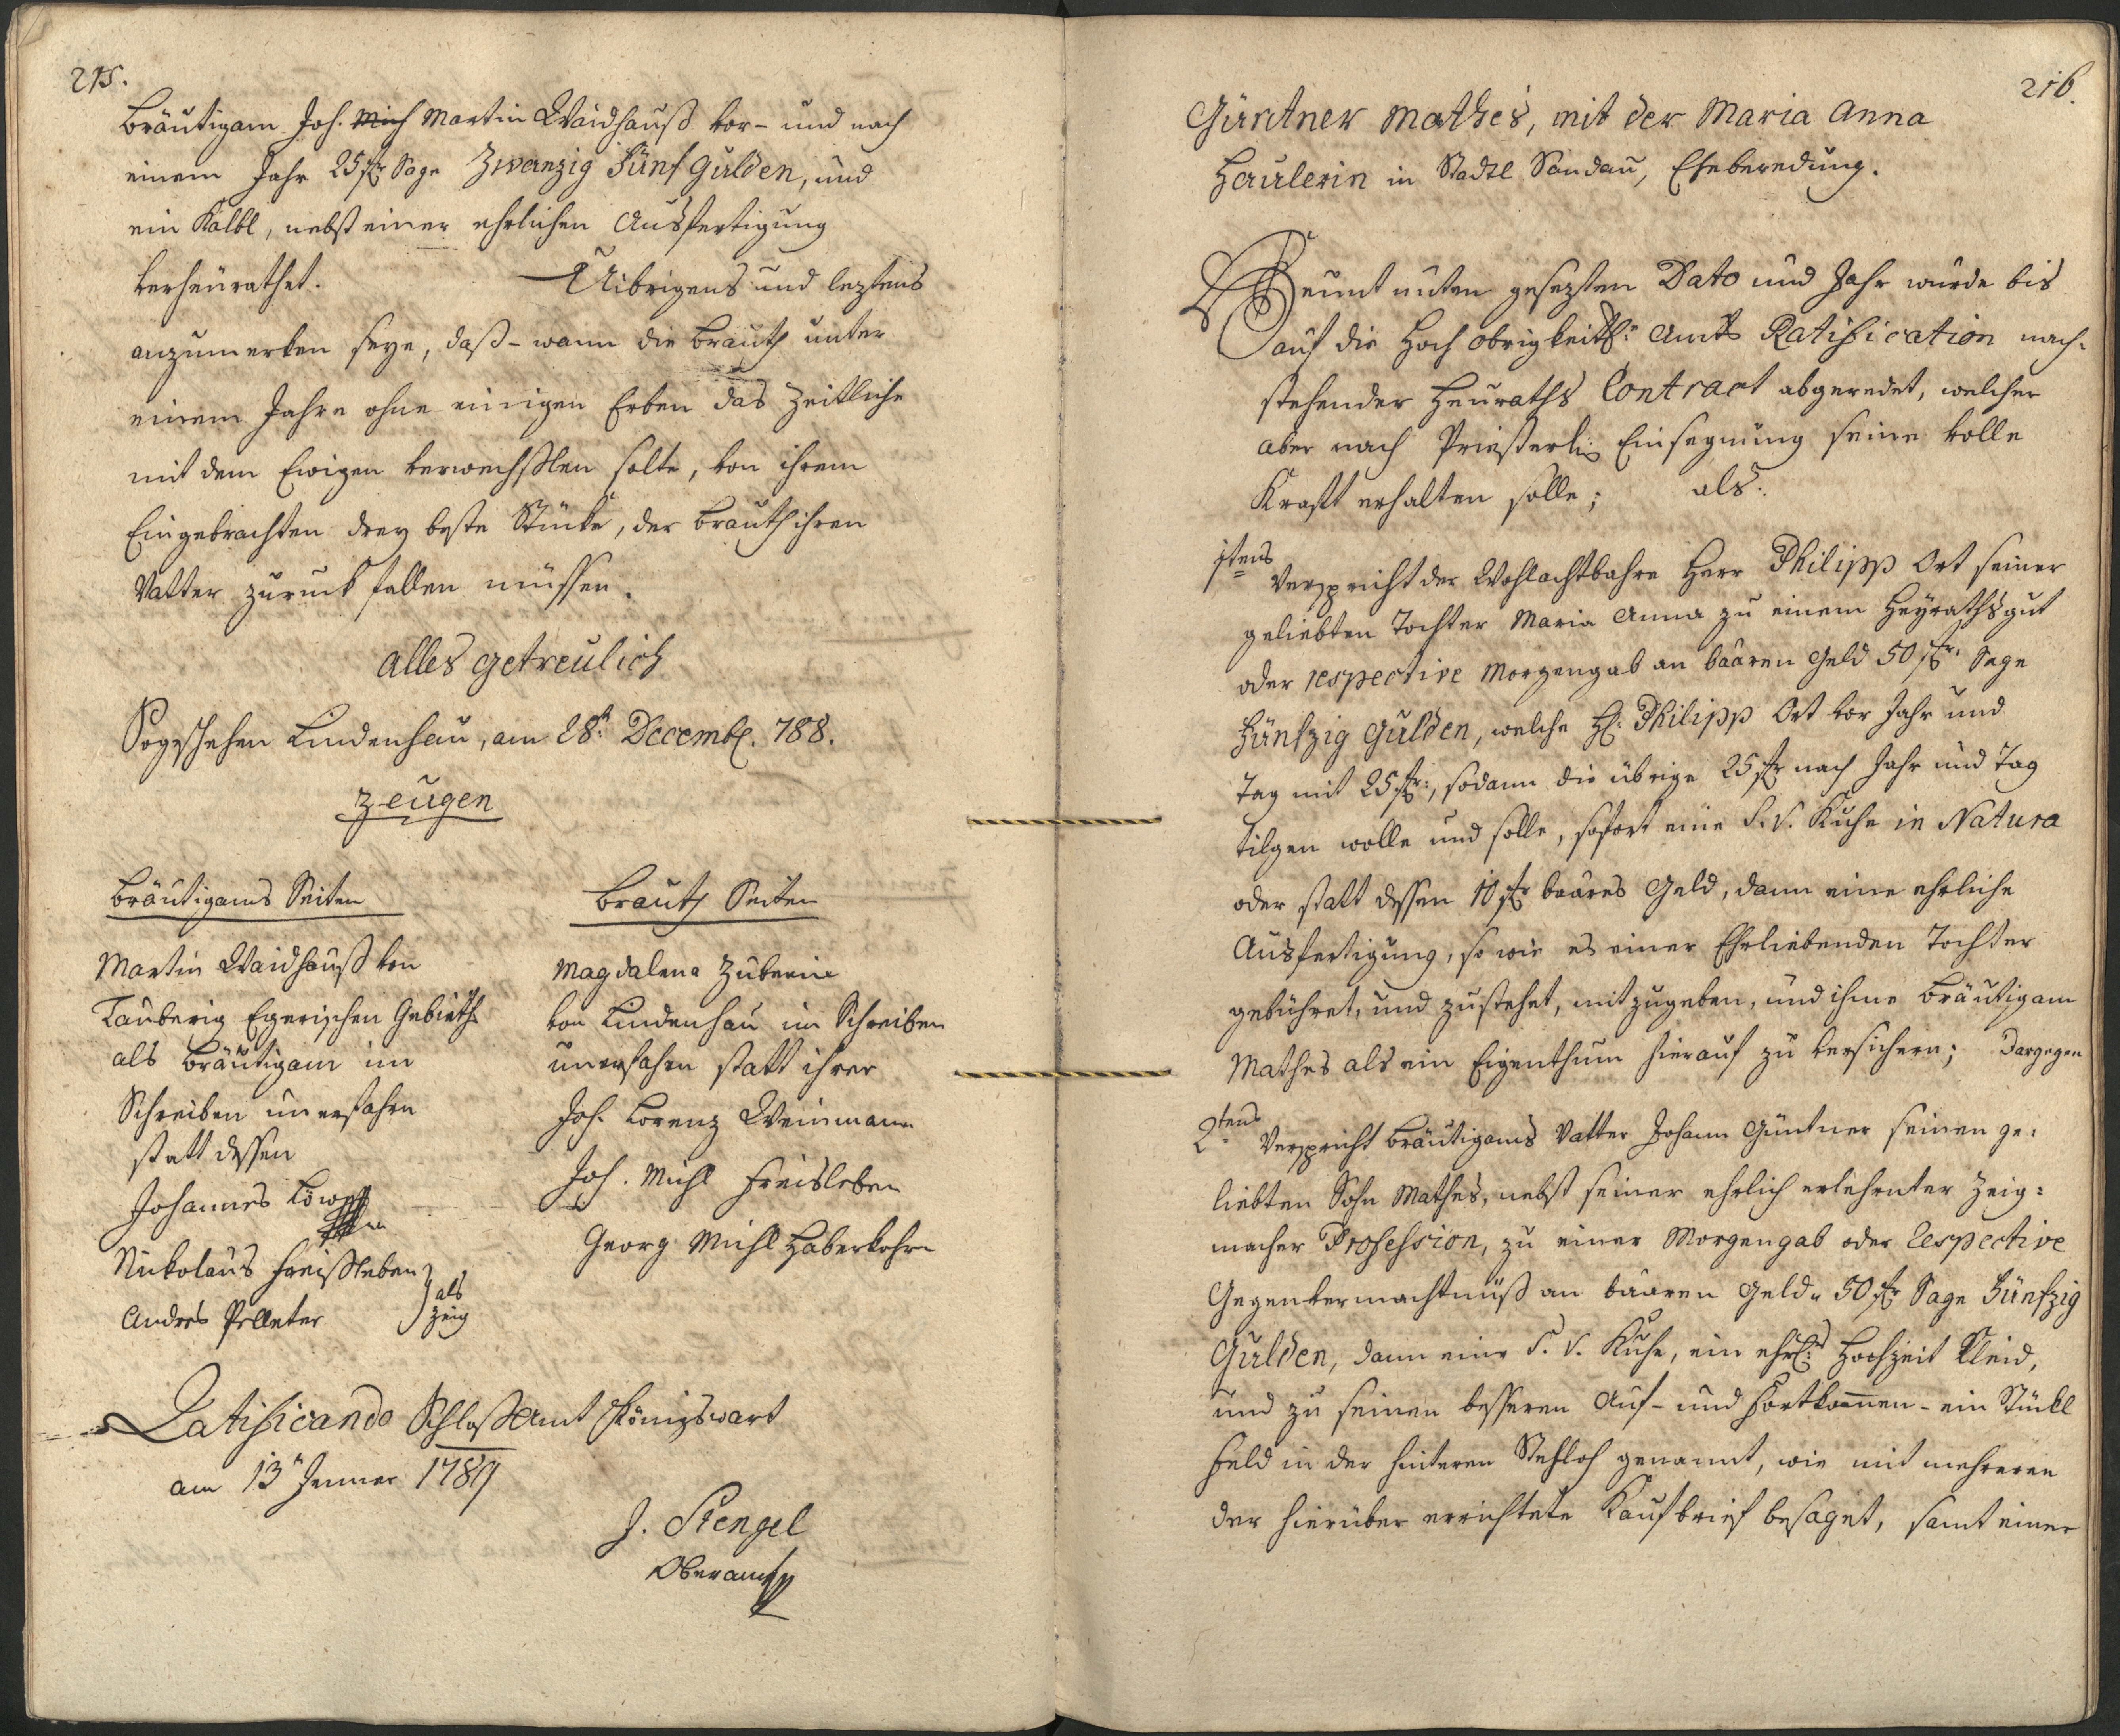 215.
Bräutigam Joh. Mich Martin Waidhauß vor- und nach
einem Jahr 25 fr Sage Zwanzig Fünf Gulden, und
ein Kalbl, nebst einer ehrlichen Ausfertigung
verheürathet. Uibrigens und leztens
anzumerken seye, daß - wann die Brauth unter
einem Jahre ohne einigen Erben das Zeitliche
mit dem Ewigen verwechßlen solte, von ihrem
Eingebrachten drey beste Stücke, der Brauth ihren
Vatter zuruck fallen müssen.
Alles getreulich
So geschehen Lindenhau, am 28t. Decemb. 788.
Zeugen
Bräutigams Seiten
Martin Waidhauß von
Tauberig Egerischen Gebieth
als Bräutigam im
Schreiben unerfahrn
statt dessen
Johannes Löw
Nickolaus Freißleben
Andres Pelleter } als Zeig
Brauth Seiten
Magdalena Zuberin
von Lindenhau im Schreiben
unerfahrn statt ihrer
Joh. Lorenz Weinmann
Joh. Michl Freisleben
Georg Michl Haberkohrn
Ratificando Schloßamt Königswart
am 13t Jenner 1789
J. Stengel
Oberamt
216.
Güntner Mathes, mit der Maria Anna
Haulerin in Stadtl Sandau, Eheberedung.
Heunt unten gesezten Dato und Jahr wurde bis
auf die Hoch obrigkeitl: Amts Ratification nach-
stehender Heuraths Contract abgeredet, welcher
aber nach Priesterli: Einsegnung seine volle
Kraft erhalten solle; als:
1tens Verspricht der Wohlachtbahre Herr Philipp Ort seiner
geliebten Tochter Maria Anna zu einem Heyrathsgut
oder respective Morgengab an baaren Geld 50 fr. Sage
Fünfzig Gulden, welche H: Philipp Ort vor Jahr und
Tag mit 25 fr:, sodann die übrige 25 fr nach Jahr und Tag
tilgen wolle und solle, sofort eine S. V. Kuhe in Natura
oder statt dessen 10 fr baares Geld, dann eine ehrliche
Ausfertigung, so wie es einer Ehrliebenden Tochter
gebühret, und zustehet, mitzugeben, und ihme Bräutigam
Mathes als ein Eigenthum hierauf zu versichern; Dargegen
2tens Verspricht Bräutigams Vatter Johann Güntner seinen ge-
liebten Sohn Mathes, nebst seiner ehrlich erlehrnter Zeig-
macher Profession, zu einer Morgengab oder Respective
Gegenvermachtnüß an baaren Geld 50 fr Sage Fünfzig
Gulden, dann eine S. V. Kuhe, ein ehrl: Hochzeit Kleid,
und zu seinen besseren Auf- und Fortkommen - ein Stückl
Feld in der hinteren Stehloh genannt, wie mit mehreren
der hierüber errichtete Kaufbrief besaget, samt einer